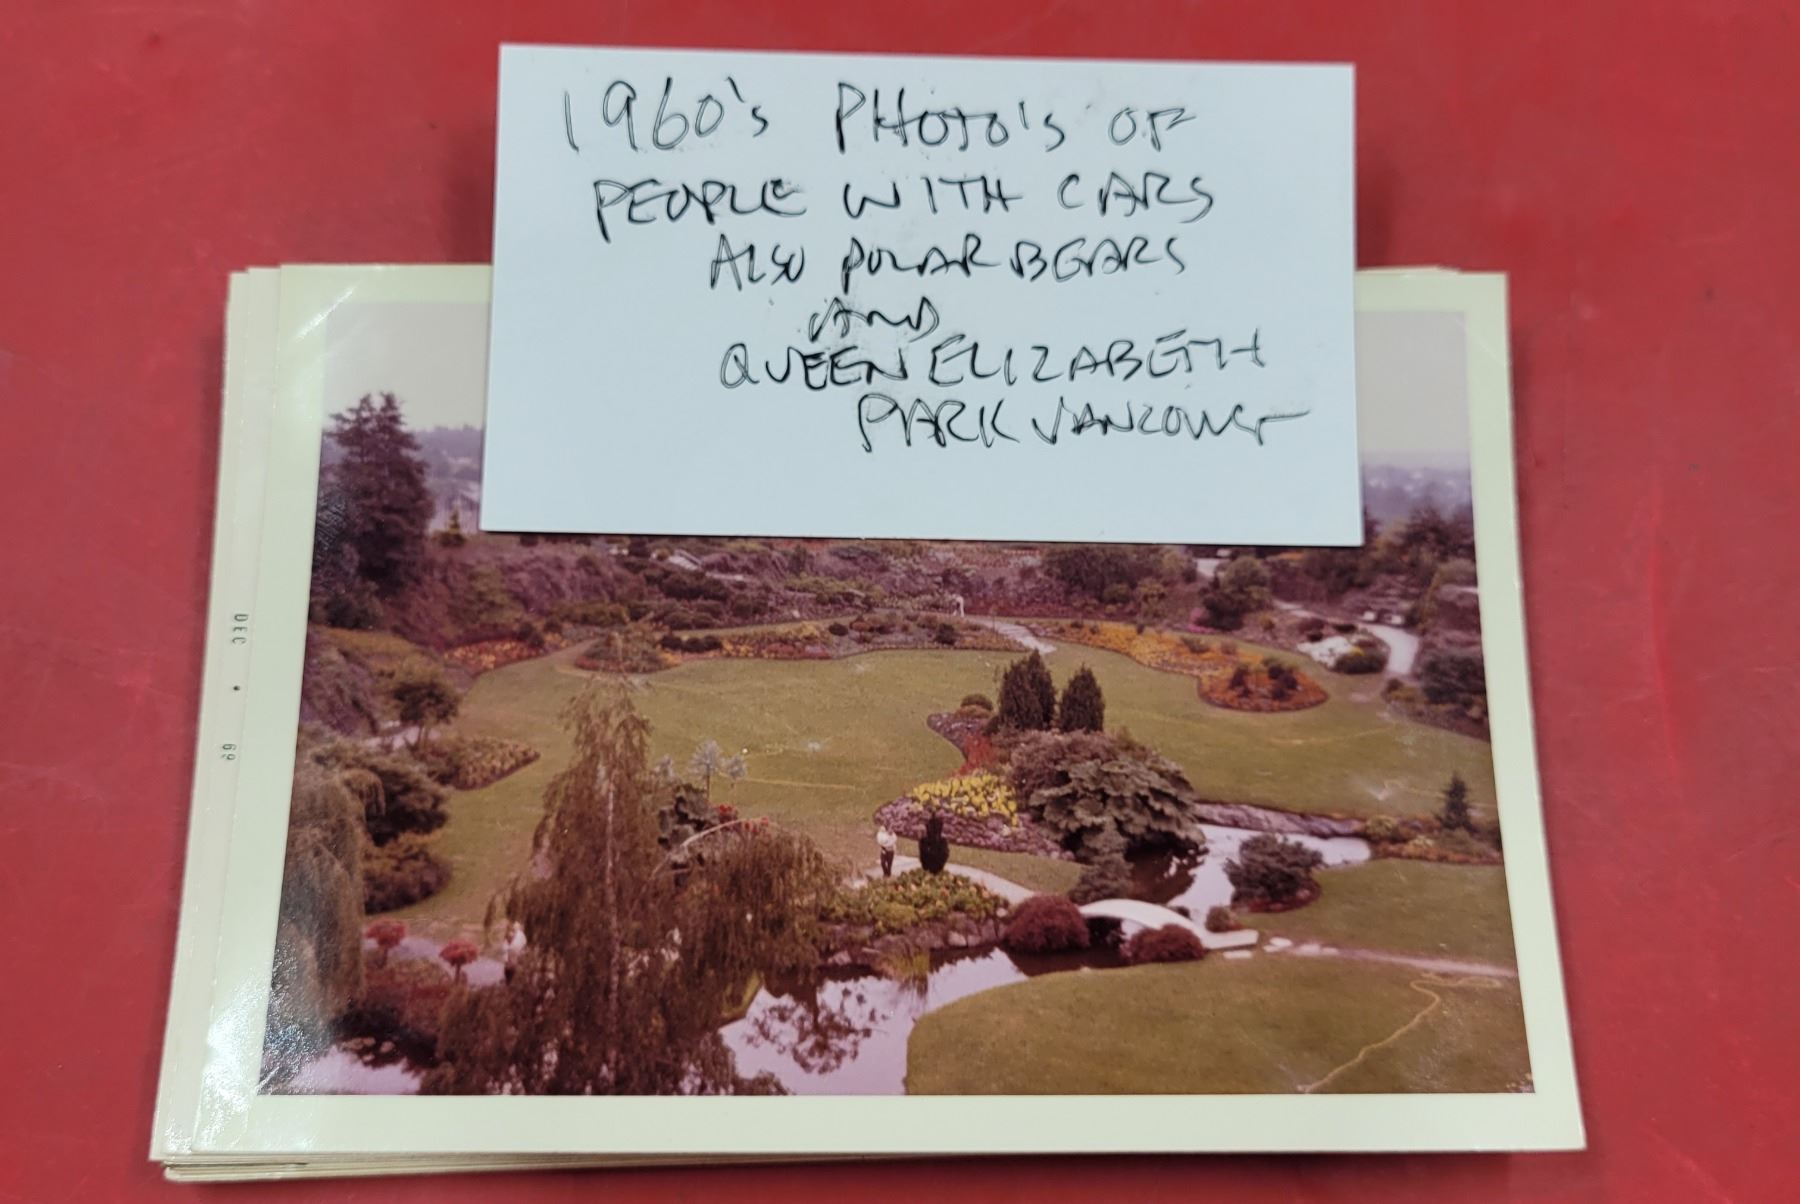 1960's PHOTO'S OF
PEOPLE WITH CARS
ALSO POLAR BEARS
AND
QUEEN ELIZABETH
PARK VANCOUVER
DEC • 69